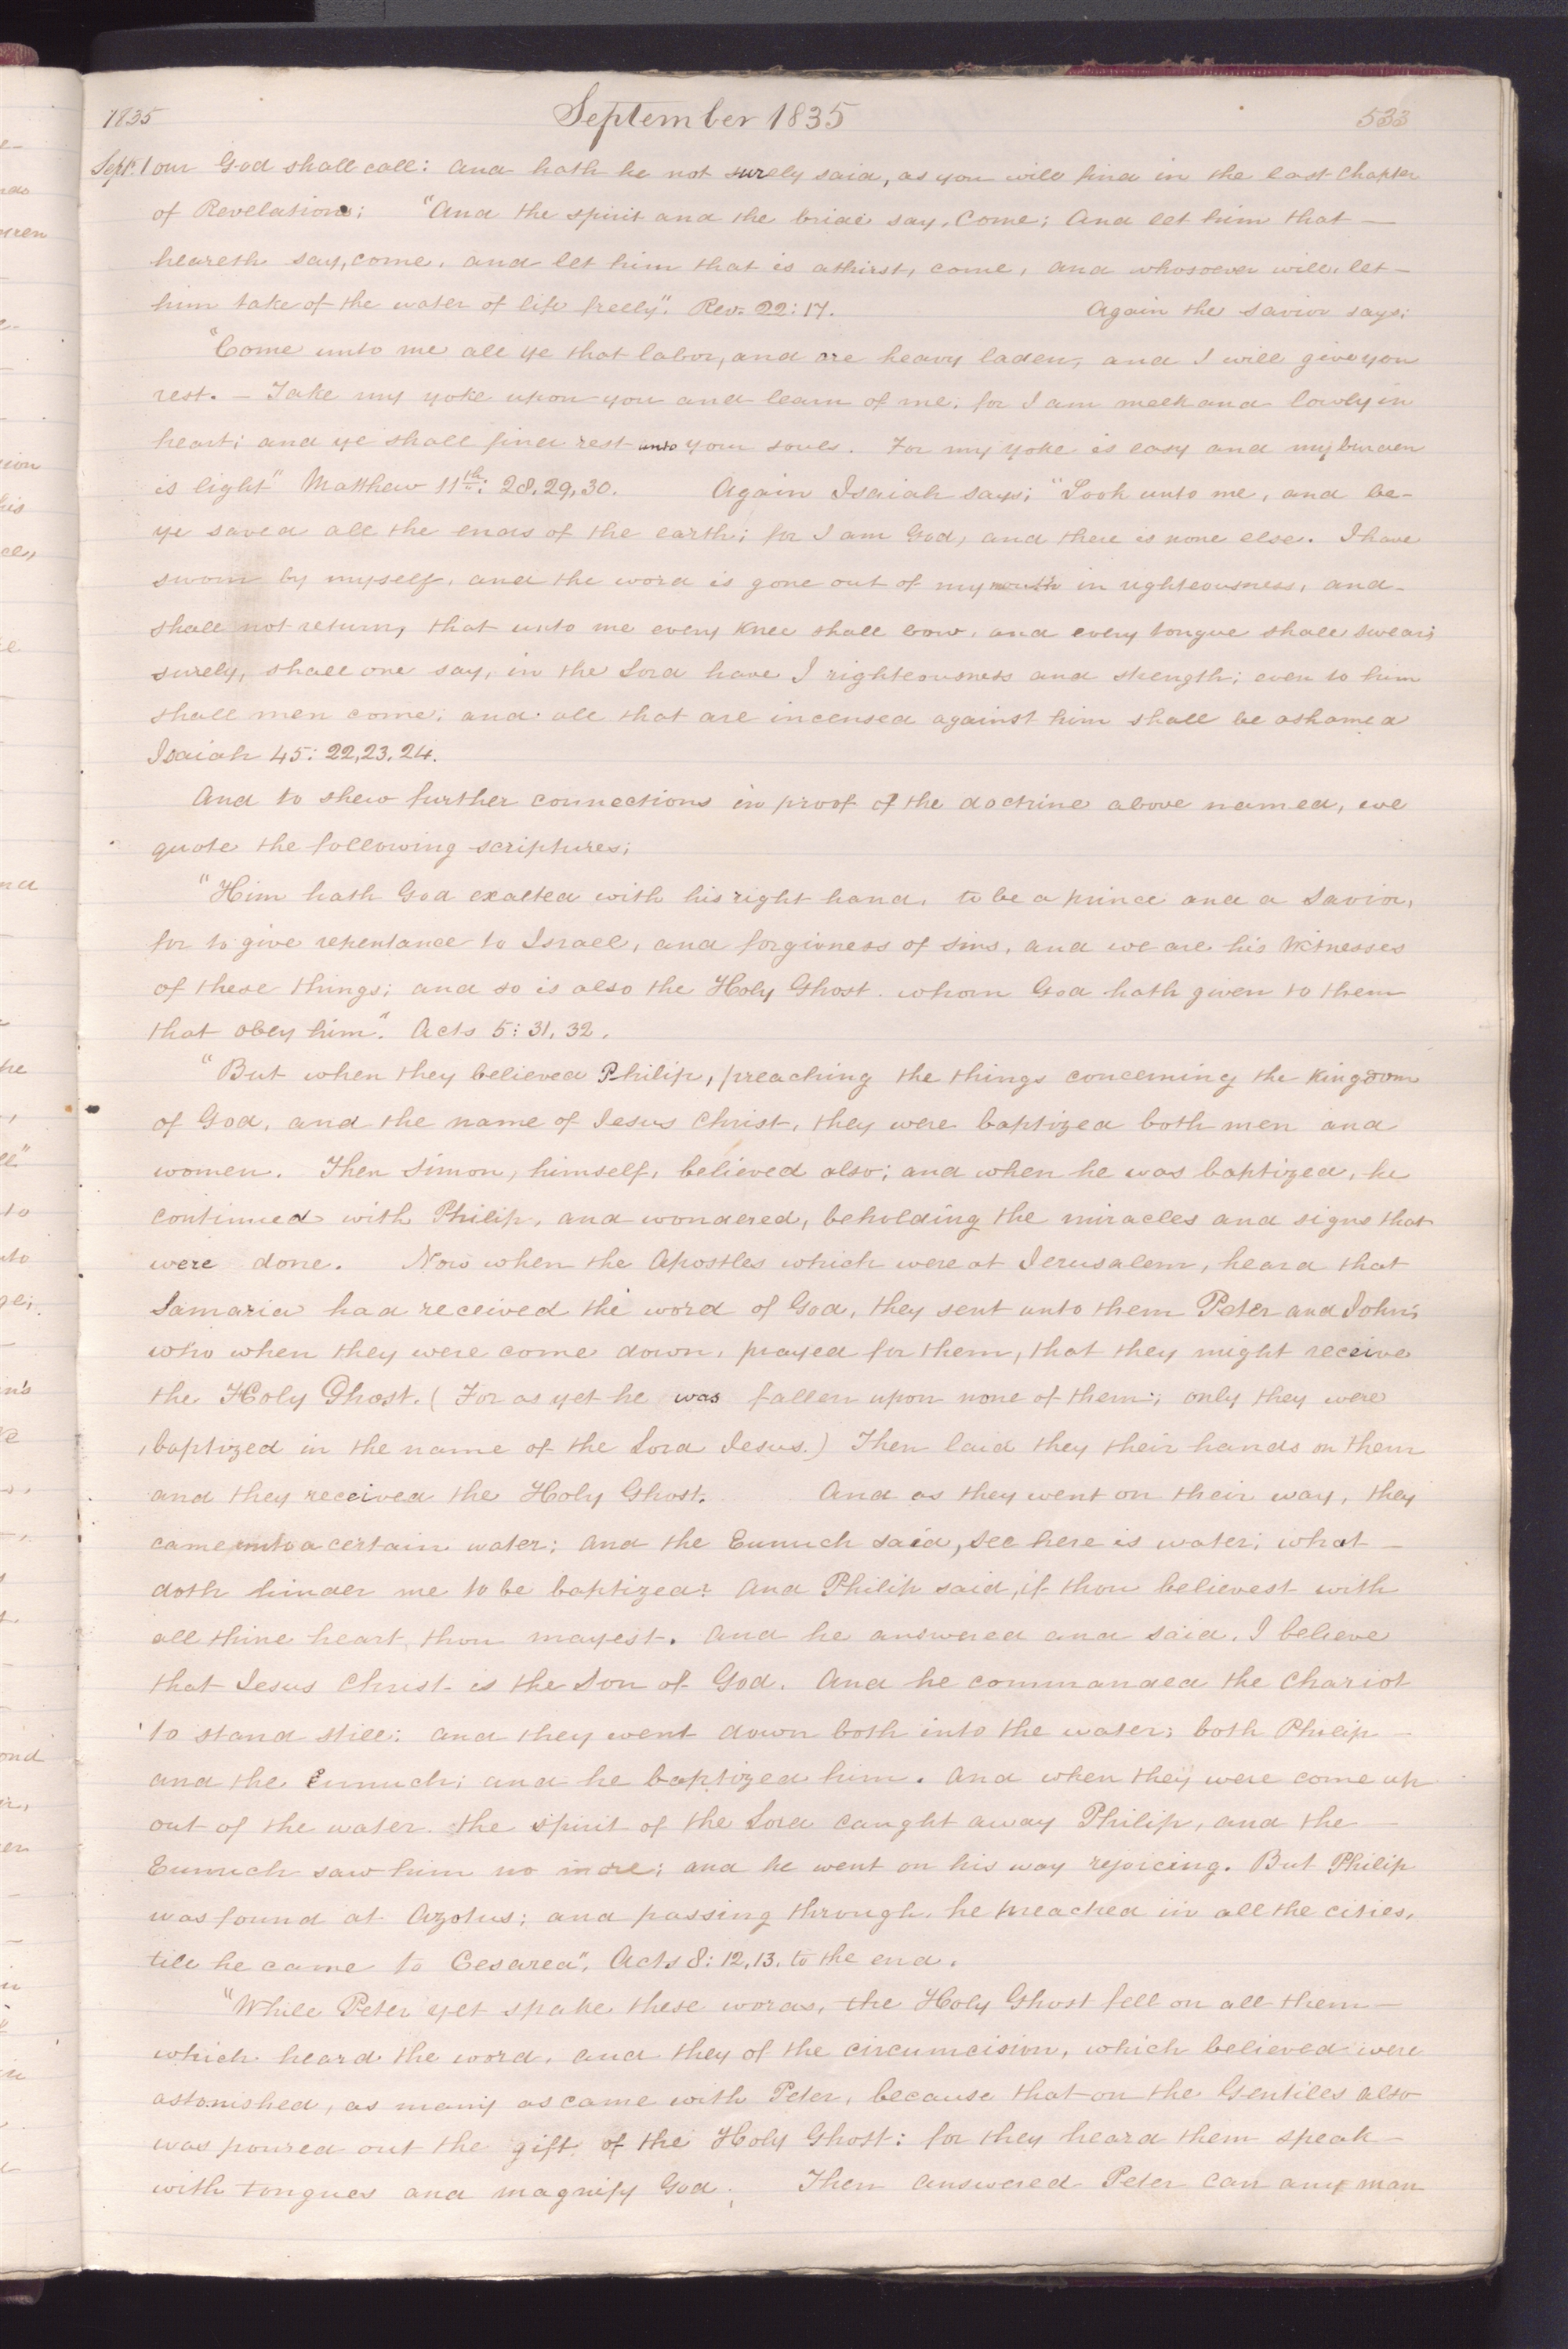 1835 September 1835 533
Sept. 1 our God shall call: and hath he not surely said, as you will find in the last chapter
of Revelations; "And the spirit and the bride say, Come; And let him that
heareth say, come, and let him that is athirst, come, and whosoever will, let
him take of the water of life freely". Rev. 22: 17. Again the Savior says;
"Come unto me all ye that labor, and are heavy laden, and I will give you
rest. – Take my yoke upon you and learn of me, for I am meek and lowly in
heart; and ye shall find rest unto your souls. For my yoke is easy and my burden
is light" Matthew 11th: 28, 29, 30. Again Isaiah says; "Look unto me, and be
ye saved all the ends of the earth; for I am God, and there is none else. I have
sworn by myself, and the word is gone out of my mouth in righteousness, and
shall not return, that unto me every Knee shall bow, and every tongue shall swear;
surely, shall one say, in the Lord have I righteousness and strength; even to him
shall men come; and all that are incensed against him shall be ashamed
Isaiah 45: 22, 23, 24.
And to shew further connections in proof of the doctrine above named, we
quote the following scriptures;
"Him hath God exalted with his right hand, to be a prince and a Savior,
for to give repentance to Israel, and forgivness of sins, and we are his Witnesses
of these things; and so is also the Holy Ghost. whom God hath given to them
that obey him". Acts 5: 31, 32.
"But when they believed Philip, preaching the things concerning the Kingdom
of God, and the name of Jesus Christ, they were baptized both men and
women. Then Simon, himself, believed also; and when he was baptized, he
continued with Philip, and wondered, beholding the miracles and signs that
were done. Now when the Apostles which were at Jerusalem, heard that
Samaria had received the word of God, they sent unto them Peter and John;
who when they were come down, prayed for them, that they might receive
the Holy Ghost. (For as yet he was fallen upon none of them; only they were
baptized in the name of the Lord Jesus.) Then laid they their hands on them
and they received the Holy Ghost. And as they went on their way, they
came unto a certain water; and the Eunuch said, see here is water; what
doth hinder me to be baptized? And Philip said, if thou believest with
all thine heart, thou mayest. And he answered and said, I believe
that Jesus Christ is the Son of God. And he commanded the Chariot
to stand still; and they went down both into the water; both Philip
and the Eunuch; and he baptized him. And when they were come up
out of the water. the spirit of the Lord caught away Philip, and the
Eunuch saw him no more; and he went on his way rejoicing. But Philip
was found at Azotus; and passing through, he preached in all the cities,
till he came to Cesarea", Acts 8: 12, 13. to the end.
"While Peter yet spake these words, the Holy Ghost fell on all them
which heard the word, and they of the circumcision, which believed were
astonished, as many as came with Peter, because that on the Gentiles also
was poured out the gift of the Holy Ghost: for they heard them speak
with tongues and magnify God. Then answered Peter can any man